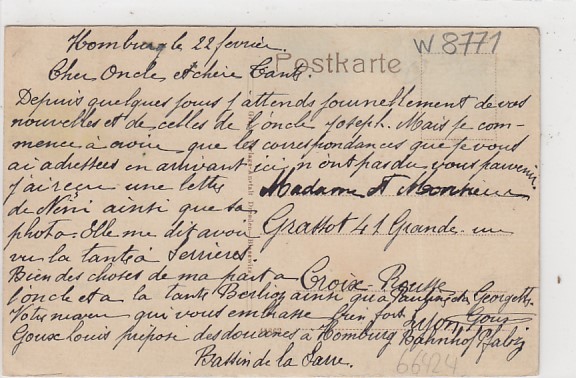 Hombourg le 22 fevrier.
W 8771
Postkarte
Cher Oncle et chère Tante.
Depuis quelques jours j'attends journellement de vos
nouvelles et de celles de l'oncle Joseph. Mais je com-
mence à croire que les correspondances que je vous
ai adressées en arrivant ici n'ont pas du vous parvenir.
J'ai reçu une lettre
de Nini ainsi que sa
photo. Elle me dit avoir
vu la tante à Serrières.
Madame et Monsieur
Grassot 41 Grande-rue
Croix-Rousse
Lyon
Bien des choses de ma part a
l'oncle et a la tante Berlioz ainsi qu'a Pauline et a Georgette
Votre neveu qui vous embrasse bien fort Goux
Goux Louis préposé des douanes à Homburg Bahnhof Pfalz
Bassin de la Sarre.
66424